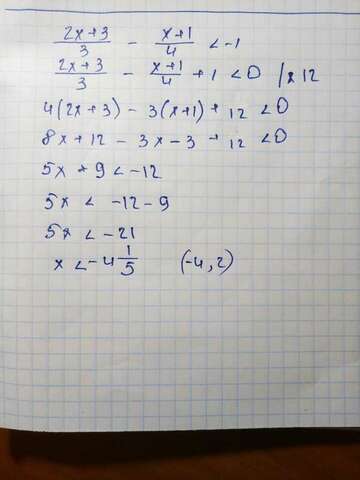 (2x+3)/3 - (x+1)/4 < -1
(2x+3)/3 - (x+1)/4 + 1 < 0 / x 12
4(2x+3) - 3(x+1) + 12 < 0
8x + 12 - 3x - 3 + 12 < 0
5x + 9 < -12
5x < -12 - 9
5x < -21
x < -4 1/5 (-4,2)